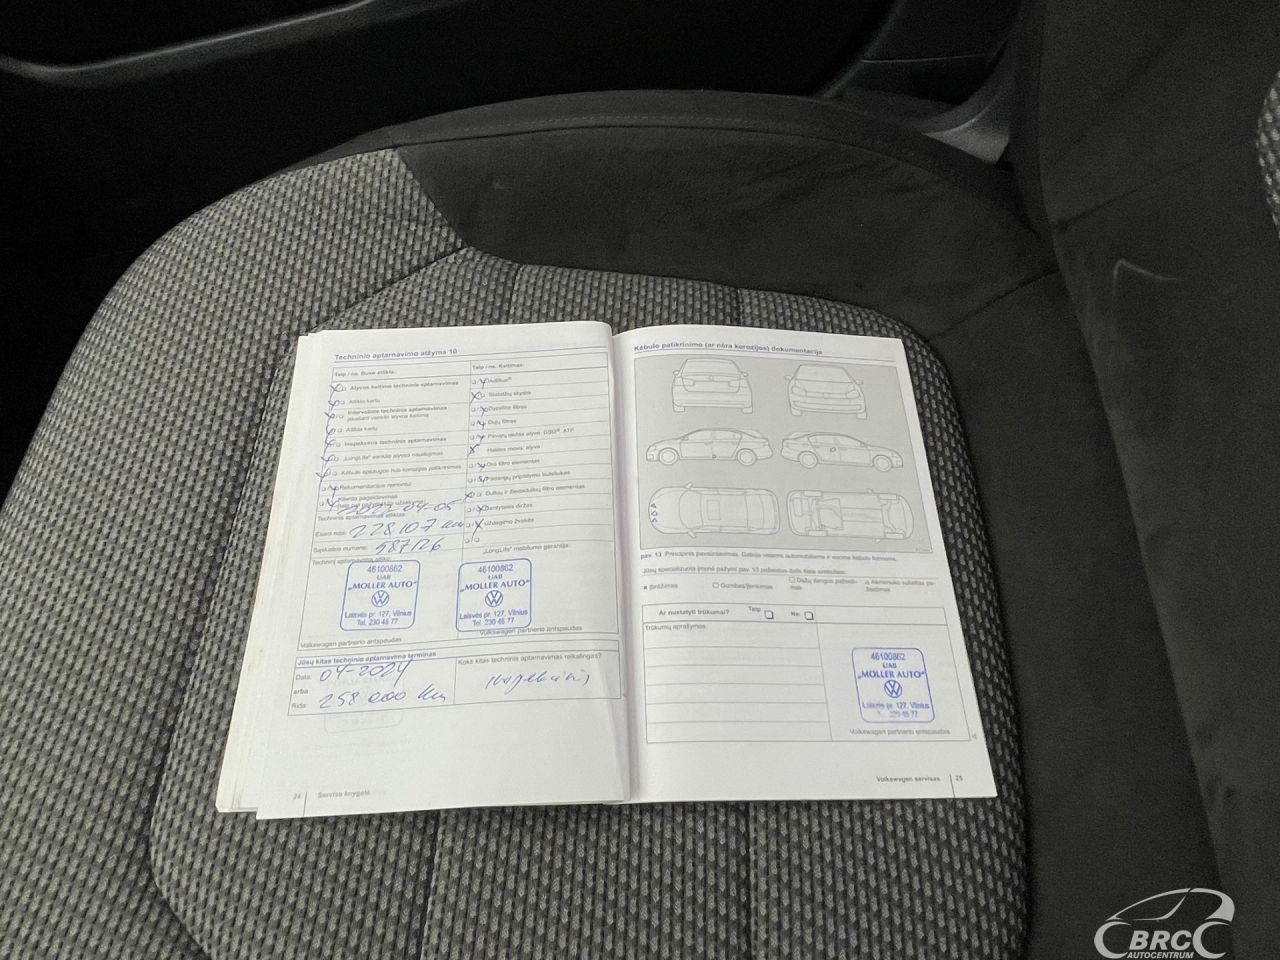 Techninio aptarnavimo atžyma 10
Taip / ne. Buvo atlikta:
Alyvos keitimo techninis aptarnavimas
Atlikta kartu
Intervalinis techninis aptarnavimas
įskaitant variklio alyvos keitimą
Atlikta kartu
Inspekcinis techninis aptarnavimas
„LongLife“ variklio alyvos naudojimas
Kėbulo apsaugos nuo korozijos patikrinimas
Rekomendacijos remontui
Kliento pageidavimas
Techninis aptarnavimas atliktas:
Esant ridai: 228107 km
Sąskaitos numeris: 587126
46100862
UAB
„MOLLER AUTO“
Laisvės pr. 127, Vilnius
Tel. 230 48 77
Volkswagen partnerio antspaudas
Taip / ne. Keitimas:
AdBlue®
Stabdžių skystis
Dyzelino filtras
Dujų filtras
Pavarų dėžės alyva: DSG®, ATF
Haldex mova: alyva
Oro filtro elementas
Padangų pripildymo buteliukas
Dulkių ir žiedadulkių filtro elementas
Dantytasis diržas
Uždegimo žvakės
„LongLife“ mobilumo garantija:
46100862
UAB
„MOLLER AUTO“
Laisvės pr. 127, Vilnius
Tel. 230 48 77
Volkswagen partnerio antspaudas
Jūsų kitas techninio aptarnavimo terminas
Data: 04-2024
arba
Rida: 258 000 km
Koks kitas techninis aptarnavimas reikalingas?
24 Serviso knygelė
Kėbulo patikrinimo (ar nėra korozijos) dokumentacija
pav. 13 Principinis pavaizdavimas. Galioja visiems automobiliams ir visoms kėbulo formoms.
Jūsų specializuota įmonė pažymi pav. 13 pažeistas dalis šiais simboliais:
Įbrėžimas
Gumbas/įlenkimas
Dažų dangos pažeidimas
Akmenuko sukeltas pažeidimas
Ar nustatyti trūkumai? Taip Ne:
Trūkumų aprašymas:
46100862
UAB
„MOLLER AUTO“
Laisvės pr. 127, Vilnius
Volkswagen partnerio antspaudas
Volkswagen servisas 25
BRC
AUTOCENTRUM